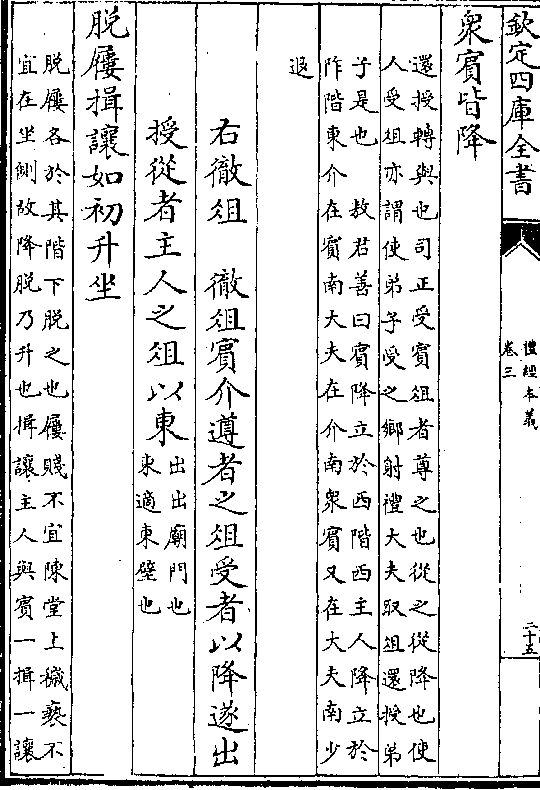 欽定四庫全書
禮經本義
卷三
二十五
衆賓皆降
還授轉與也司正受賓俎者尊之也從之從降也使
人受俎亦謂使弟子受之鄉射禮大夫取俎還授弟
子是也　敖君善曰賓降立於西階西主人降立於
阼階東介在賓南大夫在介南衆賓又在大夫南少
退
右徹俎　徹俎賓介遵者之俎受者以降遂出
授從者主人之俎以東
出出廟門也
東適東壁也
脫屨揖讓如初升坐
脫屨各於其階下脫之也屨賤不宜陳堂上穢䙝不
宜在坐側故降脫乃升也揖讓主人與賓一揖一讓